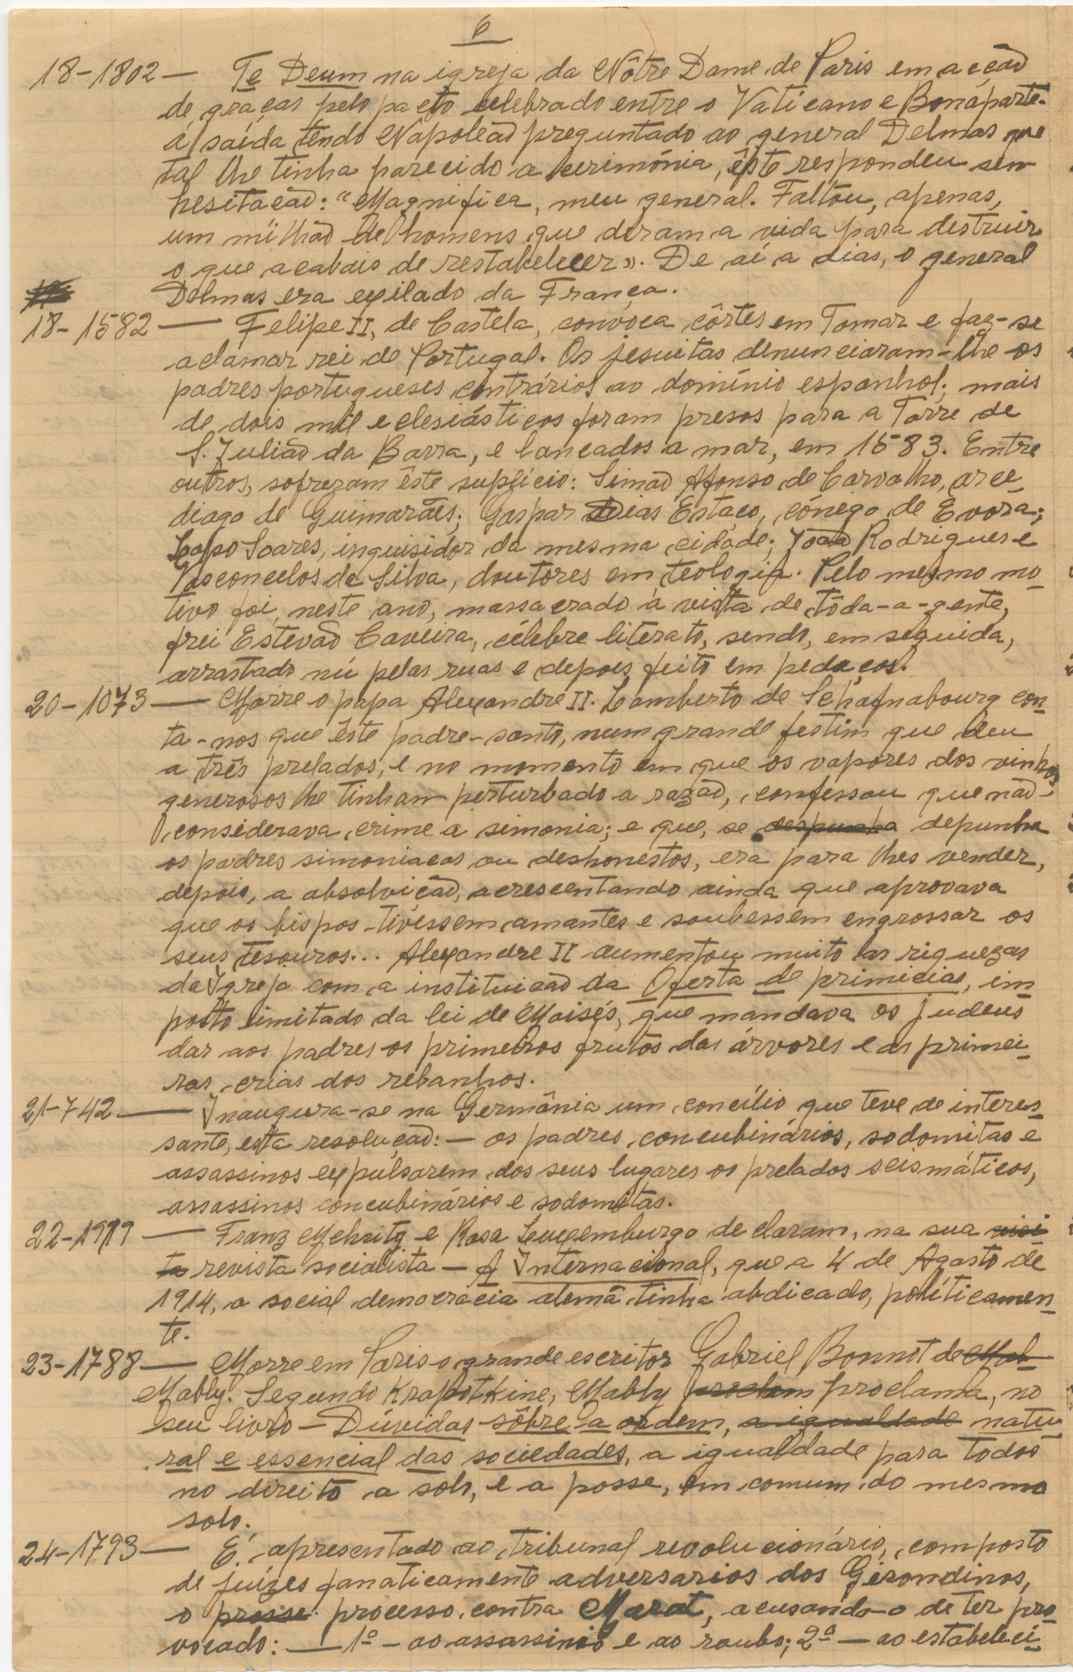 6
18-1802 — Te Deum na igreja da Nôtre Dame de Paris em acção
de graças pelo pacto celebrado entre o Vaticano e Bonaparte.
á saída tendo Napoleão preguntado ao general Delmas que
tal lhe tinha parecido a cerimónia, êste respondeu sem
hesitação: "Magnifica, meu general. Faltou, apenas,
um milhão de homens que deram a vida para destruir
o que acabais de restabelecer». De aí a dias, o general
Delmas era exilado da França.
18-1582 — Felipe II, de Castela, convóca côrtes em Tomar e faz-se
aclamar rei de Portugal. Os jesuitas denunciaram-lhe os
padres portugueses contrários ao domínio espanhol; mais
de dois mil eclesiásticos foram presos para a Tôrre de
S. Julião da Barra, e lançados a mar, em 1583. Entre
outros, sofreram êste suplício: Simão Afonso de Carvalho, arce-
diago de Guimarães; Gaspar Dias Estaço, cónego de Evora;
Lopo Soares, inquisidor da mesma cidade; João Rodrigues e
Vasconcelos da Silva, doutores em teologia. Pelo mesmo mo-
tivo foi, neste ano, massacrado á vista de tôda-a-gente,
frei Estevão Caveira, célebre literato, sendo, em seguida,
arrastado nú pelas ruas e depois feito em pedaços.
20-1073 — Morre o papa Alexandre II. Lamberto de Schafnabourg con-
ta-nos que êste padre-santo, num grande festim que deu
a três prelados, e no momento em que os vapores dos vinhos
generosos lhe tinham perturbado a razão, confessou que não
considerava crime a simonia; e que, se depunha
os padres simoniacos ou deshonestos, era para lhes vender,
depois, a absolvição, acrescentando ainda que aprovava
que os bispos tivessem amantes e soubessem engrossar os
seus tesouros... Alexandre II aumentou muito as riquezas
da Igreja com a instituição da Oferta de primicias, im-
posto imitado da lei de Moisés, que mandava os judeus
dar aos padres os primeiros frutos das árvores e as primei-
ras crias dos rebanhos.
21-742 — Inaugura-se na Germânia um concílio que teve de interes-
sante, esta resolução: — os padres concubinários, sodomitas e
assassinos expulsarem dos seus lugares os prelados scismáticos,
assassinos concubinários e sodomitas.
22-1919 — Franz Mehring e Rosa Luxemburgo declaram, na sua
revista socialista — A Internacional, que a 4 de Agosto de
1914, a social democracia alemã tinha abdicado, politicamen-
te.
23-1788 — Morre em Paris o grande escritor Gabriel Bonnot de Mab
Mably. Segundo Krapotkine, Mably proclama, no
seu livro — Dúvidas sôbre a ordem, a igualdade natu-
ral e essencial das sociedades, a igualdade para todos
no direito a solo, e a posse, em comum do mesmo
solo.
24-1793 — É apresentado ao tribunal revolucionário, composto
de juízes fanaticamente adversarios dos Gerondinos,
o processo contra Marat, acusando-o de ter pro-
vocado: — 1º — ao assassinio e ao roubo; 2º — ao estabeleci-